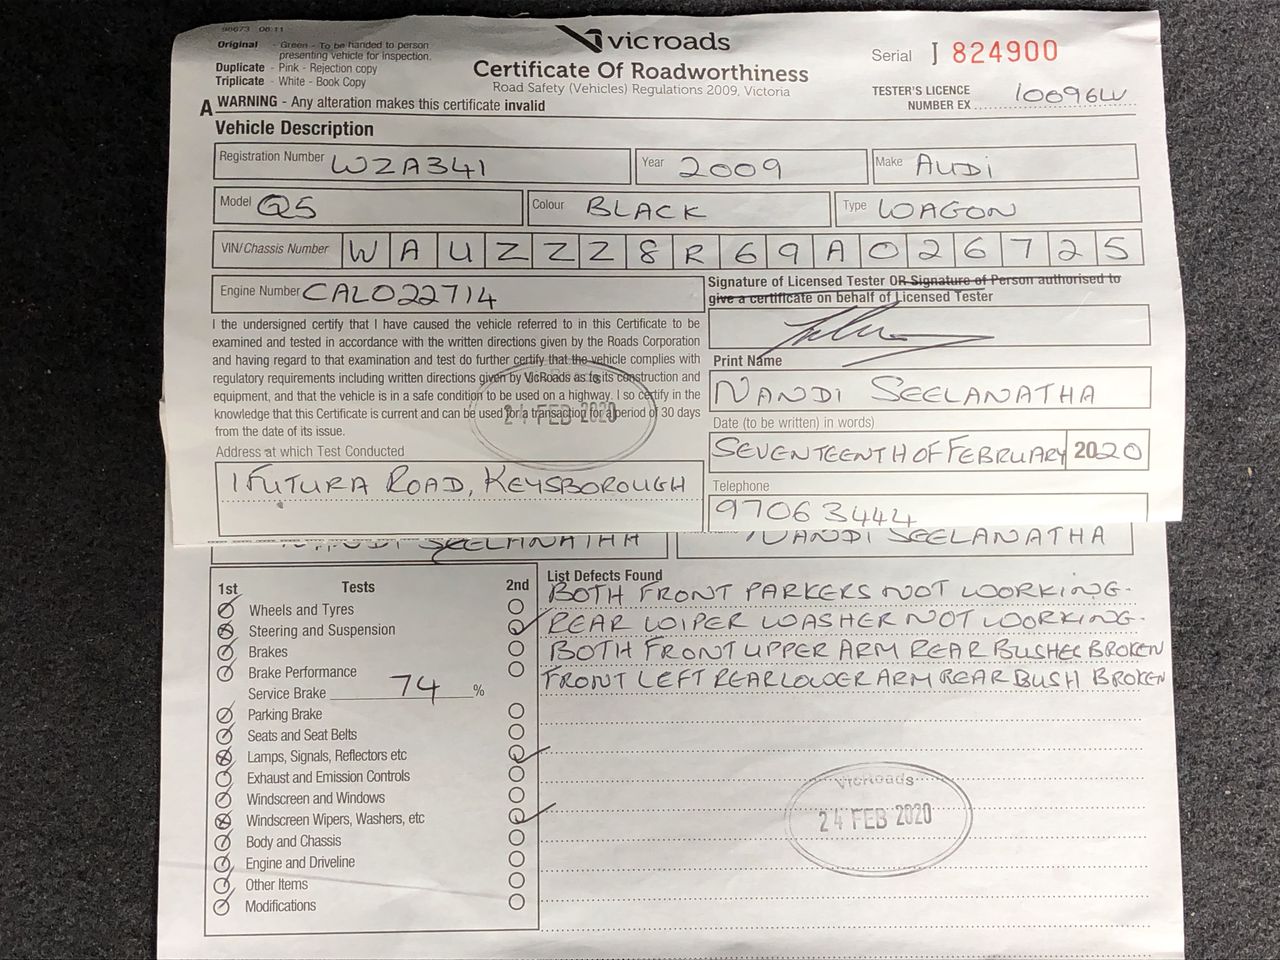 90673 06.11
Original - Green - To be handed to person
presenting vehicle for inspection.
Duplicate - Pink - Rejection copy
Triplicate - White - Book Copy
vicroads
Certificate Of Roadworthiness
Road Safety (Vehicles) Regulations 2009, Victoria
Serial J 824900
TESTER'S LICENCE
NUMBER EX 10096W
A WARNING - Any alteration makes this certificate invalid
Vehicle Description
Registration Number WZA341 Year 2009 Make AUDi
Model Q5 Colour BLACK Type WAGON
VIN/Chassis Number W A U Z Z Z 8 R 6 9 A 0 2 6 7 2 5
Engine Number CAL022714
Signature of Licensed Tester OR Signature of Person authorised to
give a certificate on behalf of Licensed Tester
I the undersigned certify that I have caused the vehicle referred to in this Certificate to be
examined and tested in accordance with the written directions given by the Roads Corporation
and having regard to that examination and test do further certify that the vehicle complies with
regulatory requirements including written directions given by VicRoads as to its construction and
equipment, and that the vehicle is in a safe condition to be used on a highway. I so certify in the
knowledge that this Certificate is current and can be used for a transaction for a period of 30 days
from the date of its issue.
24 FEB 2020
Print Name
NANDI SEELANATHA
Date (to be written) in words)
SEVENTEENTH OF FEBRUARY 2020
Address at which Test Conducted
1 FUTURA ROAD, KEYSBOROUGH
Telephone
97063444
NANDI SEELANATHA NANDI SEELANATHA
1st Tests 2nd
Wheels and Tyres
Steering and Suspension
Brakes
Brake Performance
Service Brake 74 %
Parking Brake
Seats and Seat Belts
Lamps, Signals, Reflectors etc
Exhaust and Emission Controls
Windscreen and Windows
Windscreen Wipers, Washers, etc
Body and Chassis
Engine and Driveline
Other Items
Modifications
List Defects Found
BOTH FRONT PARKERS NOT WORKING.
REAR WIPER WASHER NOT WORKING.
BOTH FRONT UPPER ARM REAR BUSHES BROKEN
FRONT LEFT REAR LOWER ARM REAR BUSH BROKEN
VicRoads
24 FEB 2020